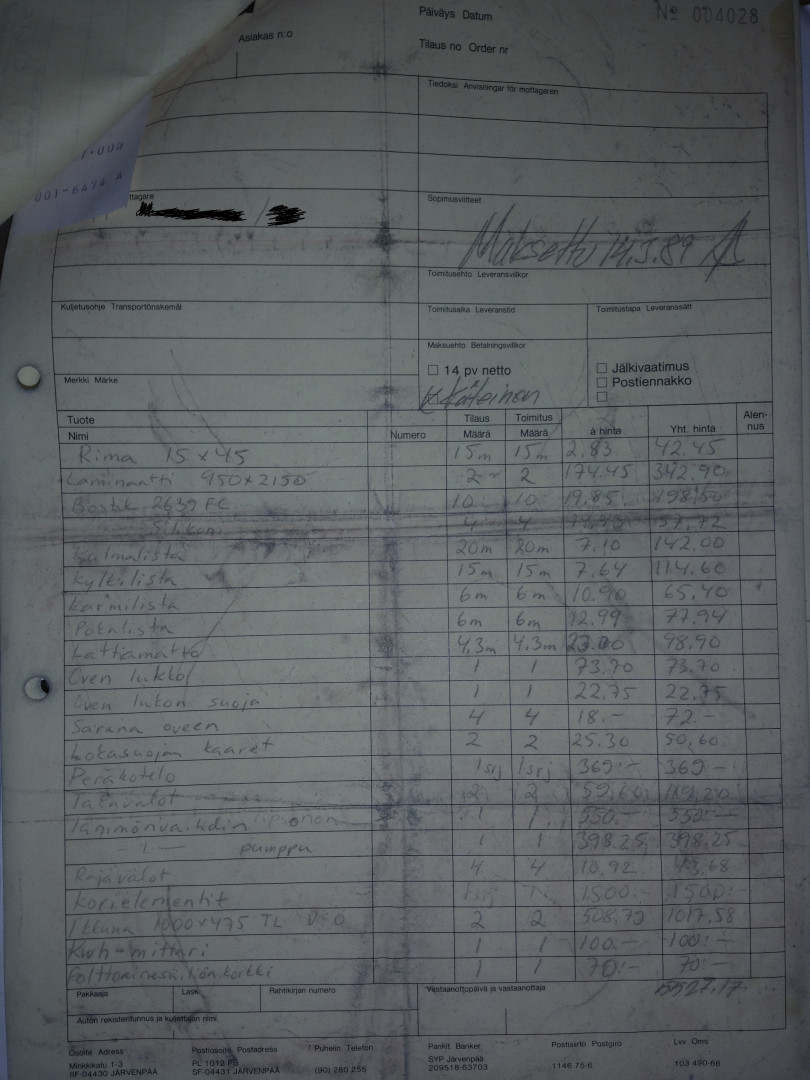 Päiväys Datum
Nº 004028
Asiakas n:o
Tilaus no Order nr
Tiedoksi Anvisningar för mottagaren
001-6474 A
ttagare
Sopimusviitteet
Maksettu 14.3.89
Toimitusehto Leveransvillkor
Kuljetusohje Transportönskemål
Toimitusaika Leveranstid
Toimitustapa Leveranssätt
Maksuehto Betalningsvillkor
14 pv netto
Jälkivaatimus
Postiennakko
Merkki Märke
x Käteinen
Tuote Tilaus Toimitus Alen-
Nimi Numero Määrä Määrä à hinta Yht. hinta nus
Rima 15 x 45 15m 15m 2.83 42.45
Laminaatti 950x2150 2 2 174.45 342.90
Bostik 2639 FC 10 10 19.85 198.50
Silikoni 4 4 57,72
Kulmalista 20m 20m 7.10 142.00
Kylkilista 15m 15m 7.64 114.60
Karmilista 6m 6m 10.90 65.40
Pokalista 6m 6m 12.99 77.94
Lattiamatto 4,3m 4.3m 23.00 98.90
Oven lukko 1 1 73.70 73.70
Oven lukon suoja 1 1 22.75 22.75
Sarana oveen 4 4 18.- 72.-
Lokasuojan kaaret 2 2 25.30 50,60
Peräkotelo 1srj 1srj 369.- 369.-
Takavalot 2 2 59,60 119,20
Lämmönvaihdin 1 1 550.- 550.-
- 11 - pumppu 1 1 398.25 398.25
Rajavalot 4 4 10,92 43,68
Korielementit 1srj 1 1500.- 1500.-
Ikkuna 1000x475 TL 2 2 508,79 1017,58
Kwh-mittari 1 1 100.- 100.-
Polttoainesäiliön korkki 1 1 70.- 70.-
5527,17
Pakkaaja
Lask.
Rahtikirjan numero
Vastaanottopäivä ja vastaanottaja
Auton rekisteritunnus ja kuljettajan nimi
Osoite Adress
Postiosoite Postadress
Puhelin Telefon
Pankit Banker
Postisiirto Postgiro
Lvv Oms
Minkkikatu 1-3
PL 1012 PB
SYP Järvenpää
SF-04430 JÄRVENPÄÄ
SF-04431 JÄRVENPÄÄ
(90) 280 255
209518-63703
1146 75-6
103 490-66